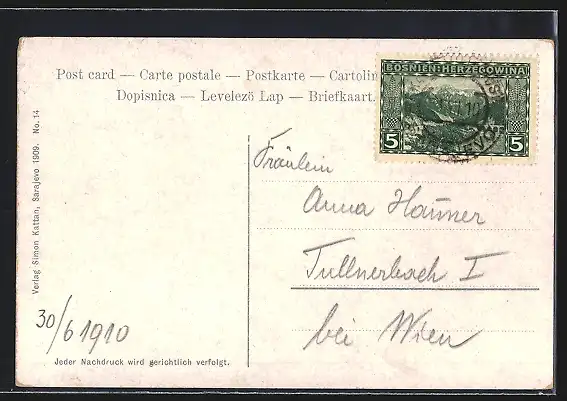 Post card — Carte postale — Postkarte — Cartolin
Dopisnica — Levelezö Lap — Briefkaart.
BOSNIEN-HERZEGOWINA
5 5
Fräulein
Anna Hauner
Tullnerbach I
bei Wien
30/6 1910
Jeder Nachdruck wird gerichtlich verfolgt.
Verlag Simon Kattan, Sarajevo 1909. No. 14